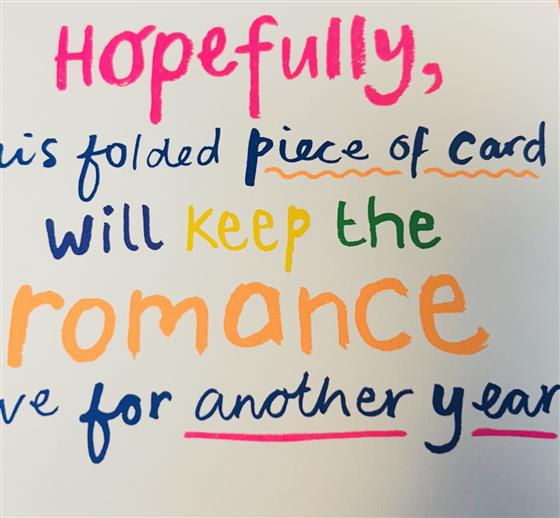 Hopefully,
is folded piece of card
will keep the
romance
ve for another year